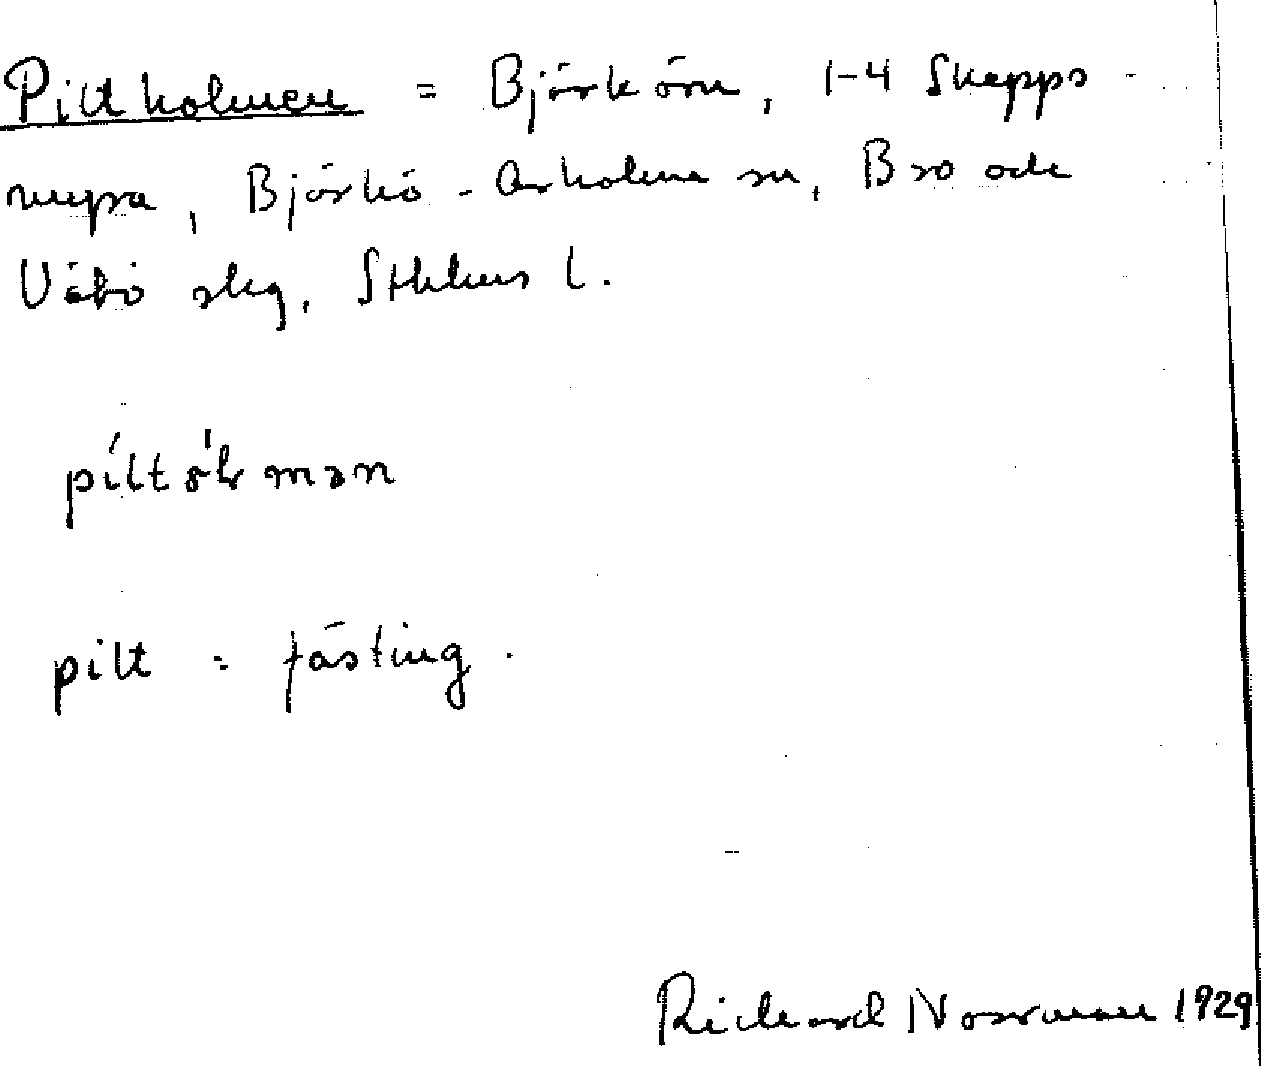 Piltholmen = Björkörn, 1-4 Skepps-
myra, Björkö-Arholma sn, Bro och
Väbö skg, Sthlms l.
piltólmən
pilt = fästing.
Richard Norrman 1929